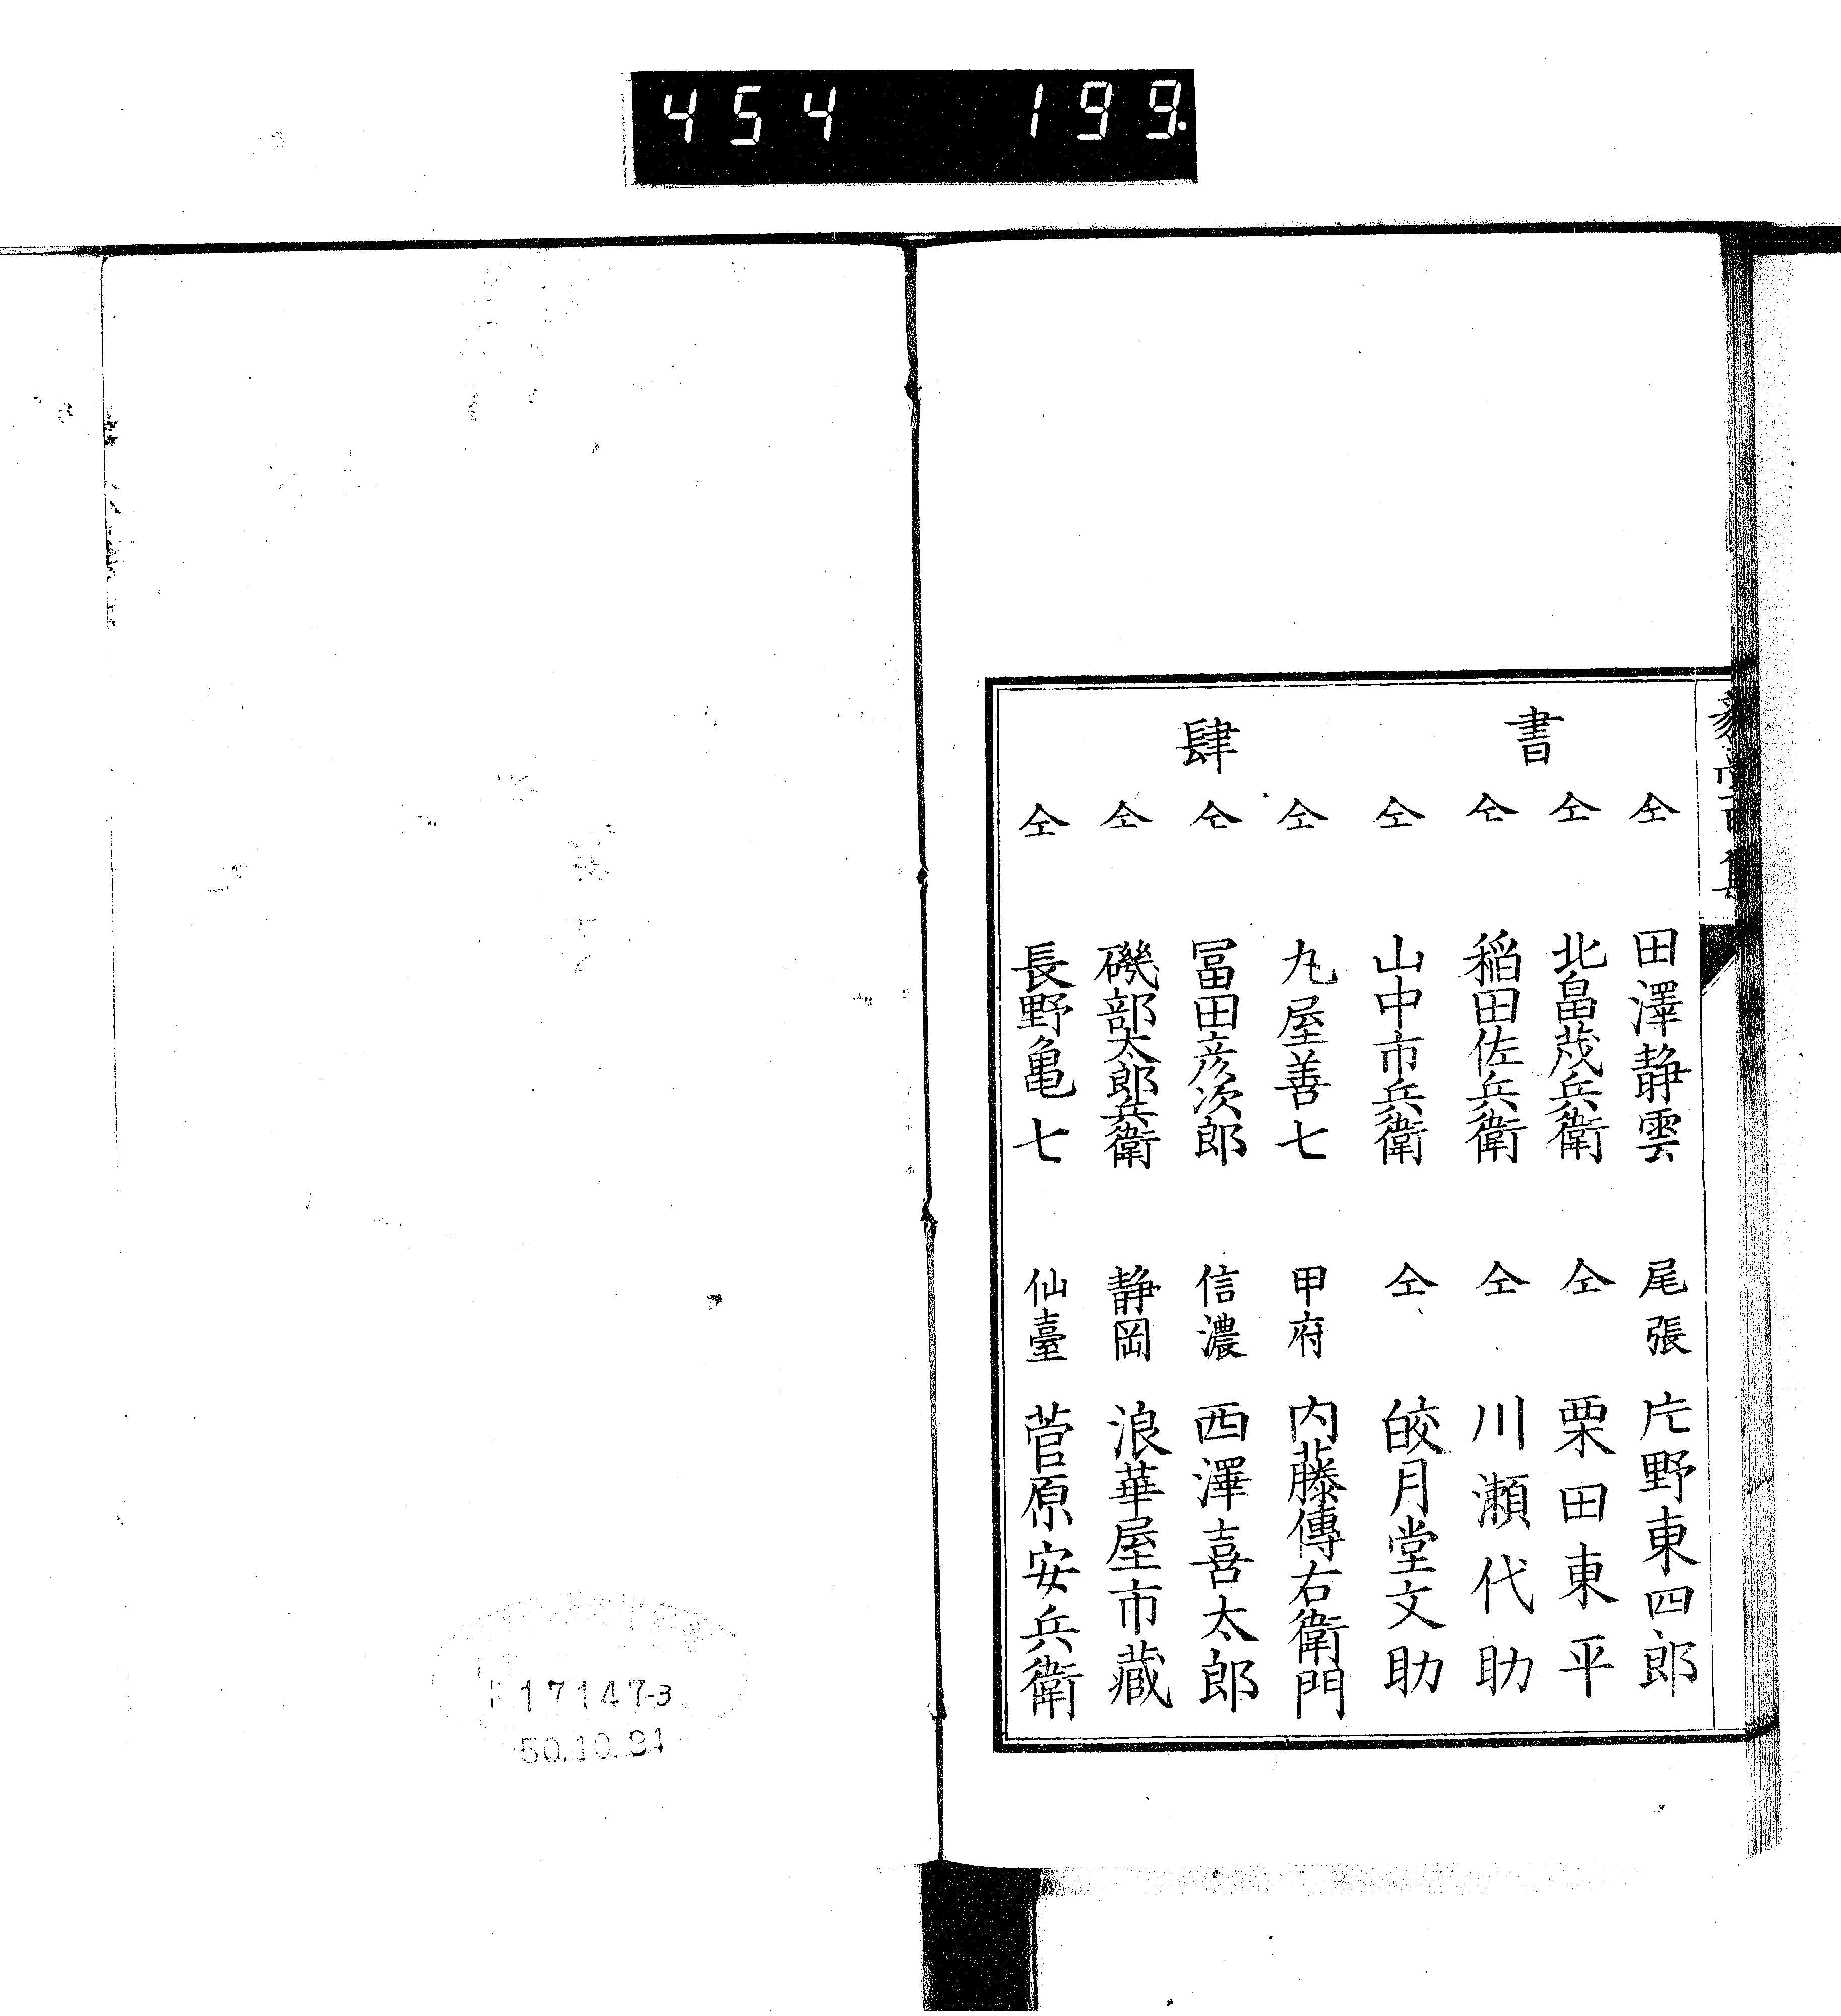 454 199.
書肆
仝 田澤静雲 尾張 片野東四郎
仝 北畠茂兵衛 仝 栗田東平
仝 稲田佐兵衛 仝 川瀬代助
仝 山中市兵衛 仝 皎月堂文助
仝 丸屋善七 甲府 内藤傳右衛門
仝 冨田彦次郎 信濃 西澤喜太郎
仝 磯部太郎兵衛 静岡 浪華屋市蔵
仝 長野亀七 仙臺 菅原安兵衛
17147-3
50.10.31